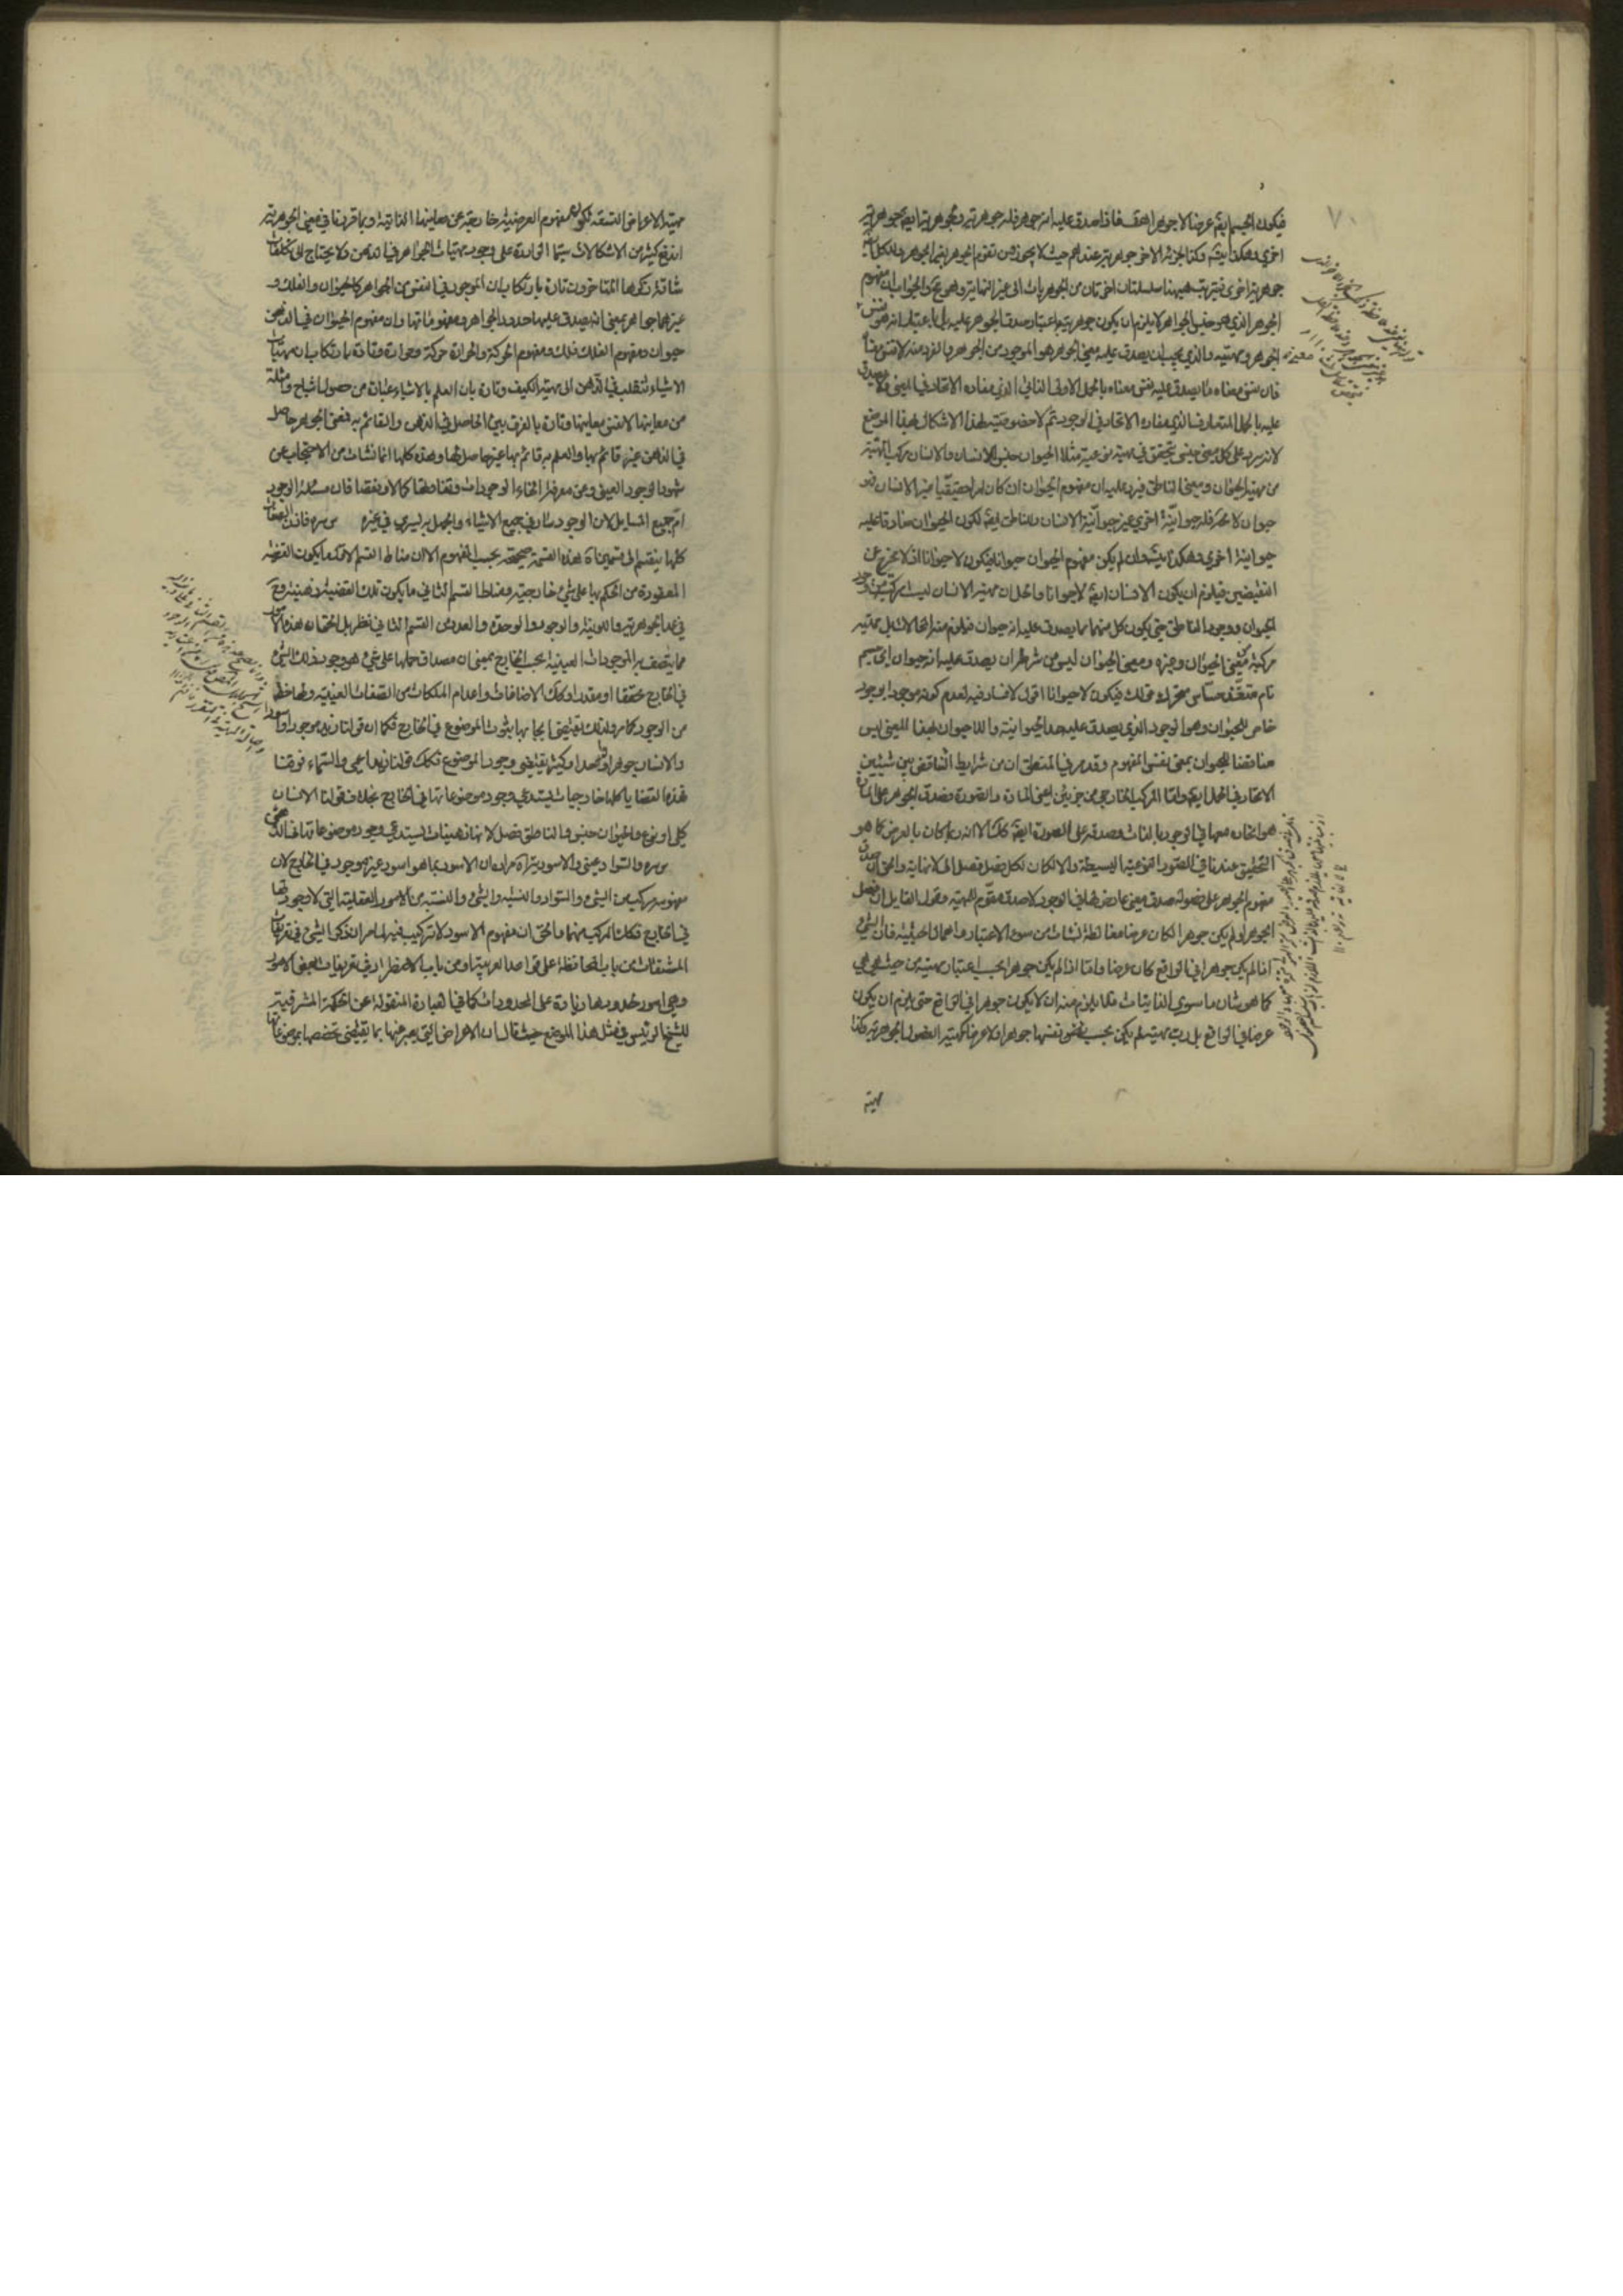 ٧٠
فيكون الجسم ايضا عرضا لا جوهرا هف فاذا صدق عليه انه جوهر فله جوهرية ولجوهريتها ايضا جوهرية
اخرى وهكذا وكذا الجزء الاخر جوهريته عندهم حيث لا يجوزون تقوم الجوهر بغير الجوهر وللكل ايضا
جوهرية اخرى فيترتب ههنا سلسلتان اخرتان من الجوهريات الى غير النهاية وهو مح والجواب ان مفهوم
الجوهر الذي هو جنس الجواهر لا يلزم ان يكون جوهريته باعتبار صدق الجوهر عليه بل باعتبار انه هو نفس
الجوهر ومهيته والذي يجب ان يصدق عليه معنى الجوهر هو الموجود من الجوهر والفرد منه لا نفس معناه
فان نفس معناه ما يصدق عليه نفس معناه بالحمل الاولي الذاتي الذي مفاده الاتحاد في المعنى ولا يصدق
عليه بالحمل المتعارف الذي مفاده الاتحاد في الوجود ثم لا خصوصية لهذا الاشكال بهذا الموضع
لانه يرد على كل معنى جنسي يتحقق في مهية نوعية مثلا الحيوان جنس للانسان والانسان مركب المهية
من مهية الحيوان ومعنى الناطق فيرد عليه ان مفهوم الحيوان ان كان امرا حقيقيا غير الانسان فهو
حيوان لا محة فله حيوانية اخرى غير حيوانية الانسان وللناطق ايضا لكون الحيوان صادقا عليه
حيوانية اخرى وهكذا وان لم يكن مفهوم الحيوان حيوانا فيكون لا حيوانا اذ لا مخرج عن
النقيضين فيلزم ان يكون الانسان ايضا لا حيوانا والحل ان مهية الانسان ليست مركبة من وجود
الحيوان ووجود الناطق حتى يكون كل منهما مما يصدق عليه انه حيوان فيلزم منه المحالات بل مهيته
مركبة من معنى الحيوان وغيره ومعنى الحيوان ليس من شرطه ان يصدق عليه انه حيوان اي جسم
نام متغذ حساس متحرك قولك فيكون لا حيوانا اقول لا فساد فيه لعدم كونه موجودا بوجود
خاص للحيوان وهو الوجود الذي يصدق عليه حد الحيوانية واللاحيوان بهذا المعنى ليس
مناقضا للحيوان بمعنى نفس المفهوم وقد مر في المنطق ان من شرايط التناقض بين شيئين
الاتحاد في الحمل ايضا واما المركب الخارجي من جزئين اعني المادة والصورة فصدق الجوهر على المادة
هو اتحاده معها في الوجود بالذات وصدقه على الصورة ايضا كك الا انه ربما كان بالعرض كما هو
التحقيق عندنا في الصور النوعية البسيطة والا لكان لكل فصل فصل الى لا نهاية والحق ان صدق
مفهوم الجوهر على فصوله صدق معنى عارض لها في الوجود لا صدق مقوم للمهية وقول القايل ان فصل
الجوهر لو لم يكن جوهرا لكان عرضا مغالطة نشات من سوء الاعتبار واهمال الحيثية فان الشيء
اذا لم يكن جوهرا في الواقع كان عرضا واما اذا لم يكن جوهرا بحسب اعتبار مهيته من حيث هي هي
كما هو شان ما سوى الذاتيات فلا يلزم منه ان لا يكون جوهرا في الواقع حتى يلزم ان يكون
عرضا في الواقع بل رب مهية لم يكن بحسب نفسها جوهرا ولا عرضا كمهية الفصول الجوهرية وكذا
مهية
مهية الاعراض التسعة لكون مفهوم العرضية خارجة عن معانيها الذاتية وبما قررنا في معنى الجوهرية
اندفع كثير من الاشكالات سيما الواردة على وجود مهيات الجواهر في الذهن ولا يحتاج الى تكلفات
شاقة ارتكبوها المتاخرون تارة بارتكاب ان الموجود في النفس من الجواهر كالحيوان والفلك و
غيرهما جواهر بمعنى انه يصدق عليها حدود الجواهر ومفهوماتها وان مفهوم الحيوان في الذهن
حيوان ومفهوم الفلك فلك ومفهوم الحركة والحرارة حركة وحرارة وتارة بارتكاب ان مهيات
الاشياء تنقلب في الذهن الى مهية الكيف وتارة بان العلم بالاشياء عبارة من حصول اشباح وامثلة
من معانيها لا نفس معانيها وتارة بالفرق بين الحاصل في الذهن والقائم به فمعنى الجوهر حاصل
في الذهن غير قائم بها والعلم به قائم بها غير حاصل لها وهذه كلها انما نشات من الاحتجاب عن
شهود الوجود العيني وعن معرفة انحاء الوجودات وتفاضلها كمالا ونقصا فان مسئلة الوجود
ام جميع المسايل لان الوجود سار في جميع الاشياء والجهل به يسري في غيره  س ره فان الصفات
كلها ينقسم الى قسمين اه هذه القسمة صحيحة بحسب المفهوم الا ان مناط القسم الاول ما يكون القضية
المعقودة من الحكم بها على شيء خارجية ومناط القسم الثاني ما يكون تلك القضية ذهنية وح
في عد الجوهرية واللونية والوجود والوحدة والعدد من القسم الثاني نظر بل الحق ان هذه الامور
مما يتصف به الموجودات العينية بحسب الخارج بمعنى ان مصداق حملها على شيء هو وجود ذلك الشيء
في الخارج محققا او مقدرا وكك الاضافات واعدام الملكات من الصفات العينية ولها حظ
من الوجود كما مر ولذلك يقتضي ايجابها بثبوت الموضوع في الخارج فكما ان قولنا زيد موجود او اسود
والانسان جوهر او واحد او كثير يقتضي وجود الموضوع فكك قولنا زيد اعمى والسماء فوقنا
فهذه القضايا كلها خارجيات يستدعي وجود موضوعاتها في الخارج بخلاف قولنا الانسان
كلي او نوع والحيوان جنس والناطق فصل لانها ذهنيات يستدعي وجود موضوعاتها في الذهن
س ره والسواد عيني والاسودية اه مراده ان الاسود بما هو اسود غير موجود في الخارج لان
مفهومه مركب من الشيء والسواد والنسبة والشيء والنسبة من الامور العقلية التي لا وجود لها
في الخارج فكك المركب منهما والحق ان مفهوم الاسود لا تركيب فيه لما مر ان ذكر الشيء في تعريفات
المشتقات من باب المحافظة على قواعد العربية او من باب الاضطرار في تعريفات بعض الامور
وهي امور حدودها زيادة على المحدودات كما في العبارة المنقولة عن الحكمة المشرقية
للشيخ الرئيس في مثل هذا الموضع حيث قال ان الاعراض التي يعبر عنها بما يقتضي تخصصها بموضوعاتها